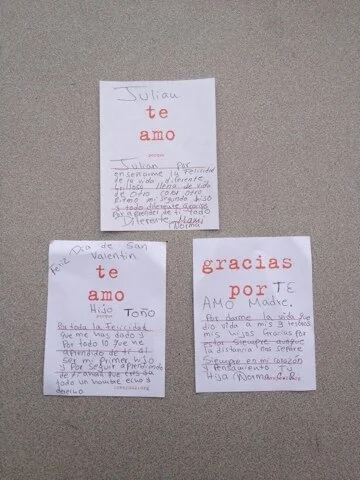 Julian
te
amo
porque
Julian por
enseñarme la Felicidad
de la vida diferente
brilloso lleno de vida
de otro color otro
Ritmo mi segundo hijo
y todo diferente gracias
Por aprender de ti todo
Diferente Mami
Norma
Feliz Dia de San
Valentin
te
amo
Hijo Toño
porque
Por toda la Felicidad
que me has dado y
Por todo lo que he
aprendido de ti al
ser mi Primer hijo
y Por seguir aprendiendo
de ti ahora que eres ya
todo un hombre echo y
derecho
gracias
por TE
AMO Madre.
Por darme la vida que
dio vida a mis 3 tesoros
mis hijos Gracias Por
estar siempre aunque
la distancia nos separe
Siempre en mi corazón
y Pensamiento Tu
Hija Norma